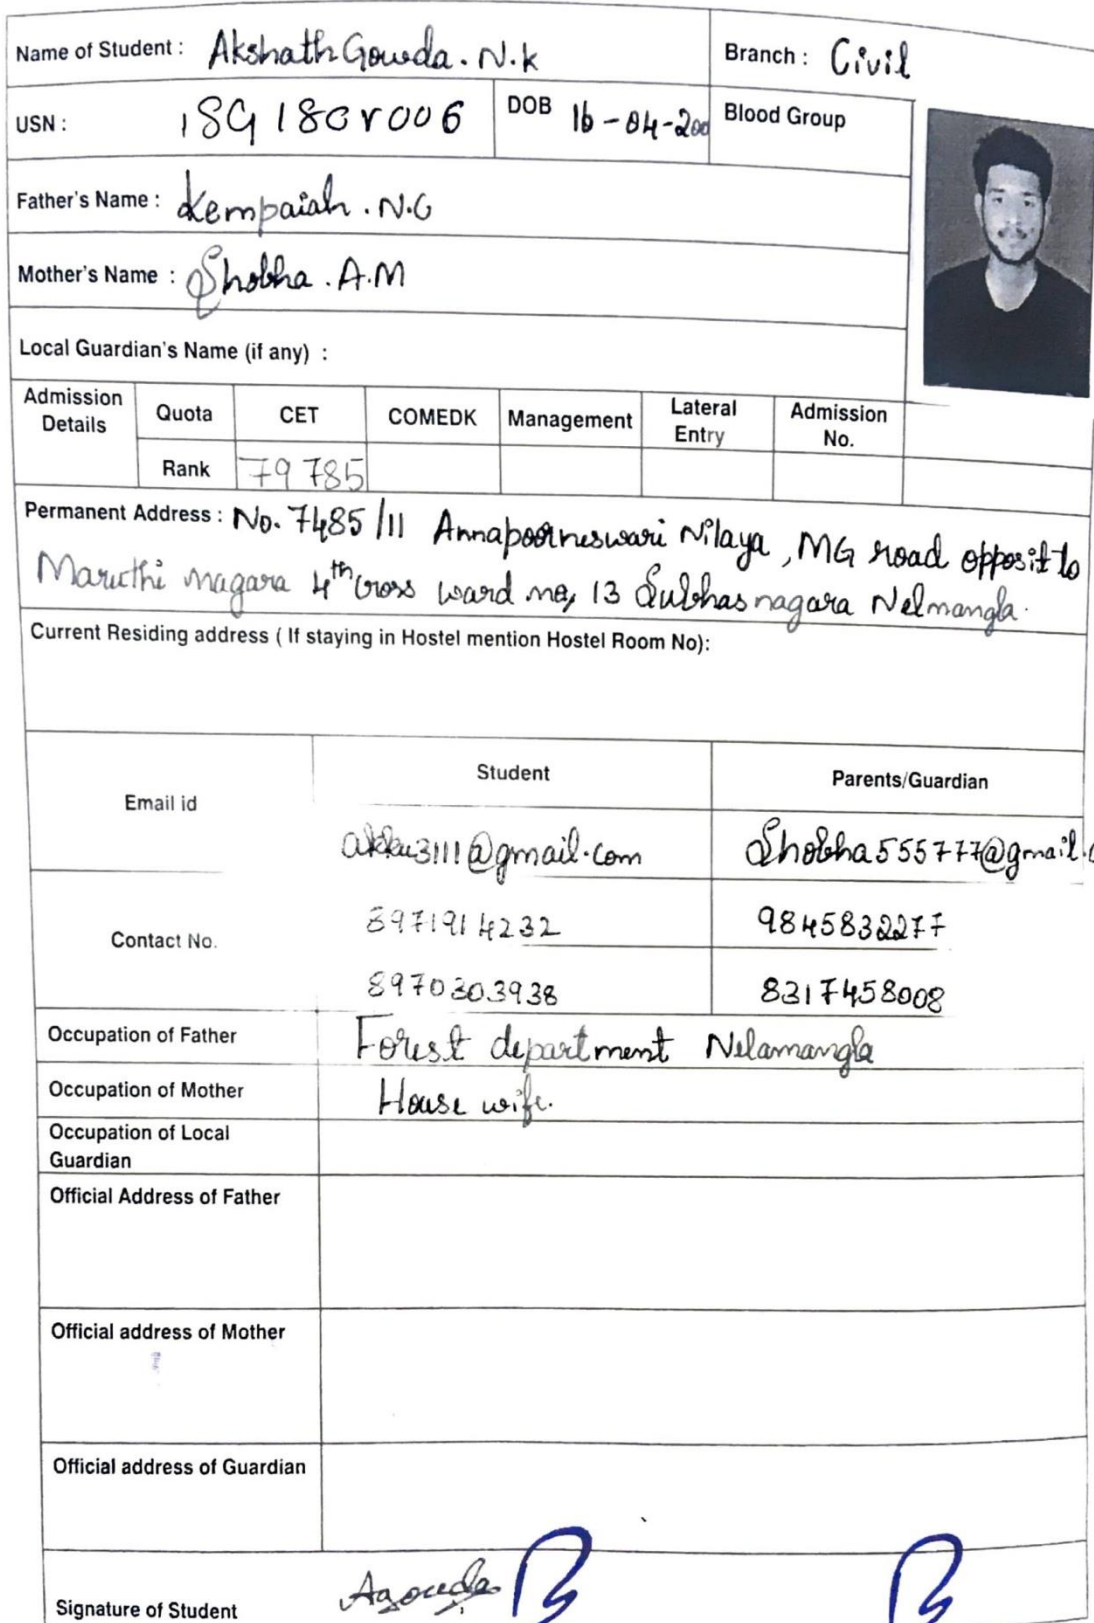 Name of Student : Akshath Gowda . N.k Branch : Civil
USN : 1SG18CV006 DOB 16-04-200 Blood Group
Father's Name : Kempaiah . N.G
Mother's Name : Shobha . A.M
Local Guardian's Name (if any) :
Admission Details Quota CET COMEDK Management Lateral Entry Admission No.
Rank 79785
Permanent Address : No. 7485/11 Annapoorneswari Nilaya , MG road opposit to
Maruthi nagara 4th cross ward no, 13 Subhas nagara Nelmangla.
Current Residing address ( If staying in Hostel mention Hostel Room No):
Email id Student Parents/Guardian
akku3111@gmail.com Shobha555777@gmail.c
Contact No. 8971914232 9845832277
8970303938 8317458008
Occupation of Father Forest department Nelamangla
Occupation of Mother House wife.
Occupation of Local
Guardian
Official Address of Father
Official address of Mother
Official address of Guardian
Signature of Student Agowda